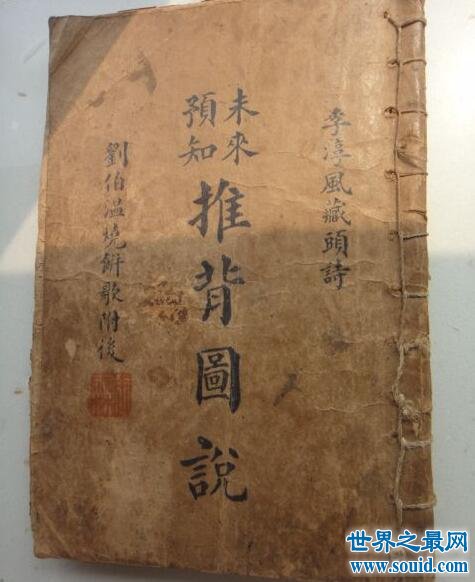 李淳風藏頭詩
未來
預知
推背圖說
劉伯温燒餅歌附後
世界之最网
www.souid.com